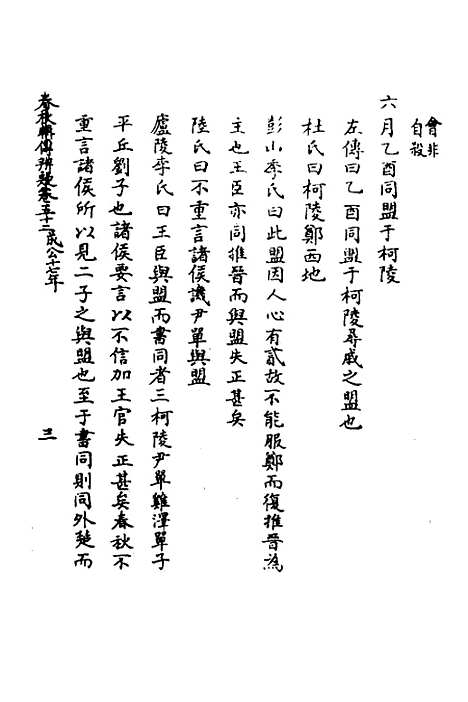 會非
自殺
六月乙酉同盟于柯陵
左傳曰乙酉同盟于柯陵尋戚之盟也
杜氏曰柯陵鄭西地
彭山季氏曰此盟因人心有貳故不能服鄭而復推晉為
主也王臣亦同推晉而與盟失正甚矣
陸氏曰不重言諸侯譏尹單與盟
廬陵李氏曰王臣與盟而書同者三柯陵尹單雞澤單子
平丘劉子也諸侯要言以不信加王官失正甚矣春秋不
重言諸侯所以見二子之與盟也至于書同則同外楚而
春秋輯傳辨疑卷五十二 成公十七年 三